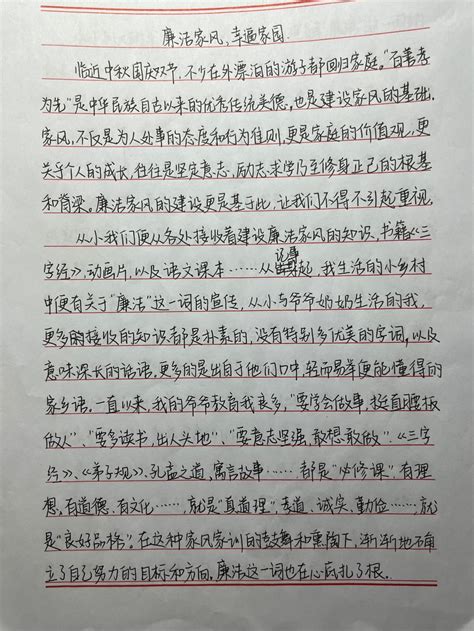 廉洁家风,幸福家园.
临近中秋国庆双节,不少在外漂泊的游子都回归家庭。"百善孝
为先"是中华民族自古以来的优秀传统美德,也是建设家风的基础.
家风,不仅是为人处事的态度和行为准则,更是家庭的价值观,更
关乎个人的成长,往往是坚定意志,励志求学乃至修身正己的根基
和脊梁。廉洁家风的建设更是基于此,让我们不得不引起重视.
从小我们便从各处接收着建设廉洁家风的知识,书籍《三
字经》,动画片,以及语文课本……从记事起,我生活的小乡村
中便有关于"廉洁"这一词的宣传,从小与爷爷奶奶生活的我,
更多的接收的知识都是朴素的,没有特别多优美的字词,以及
意味深长的话语,更多的是出自于他们口中,轻而易举便能懂得的
家乡语。一直以来,我的爷爷教育我良多,"要学会做事,挺直腰板
做人"、"要多读书,出人头地"、"要意志坚强,敢想敢做".《三字
经》、《弟子规》、孔孟之道,寓言故事……都是"必修课"有理
想,有道德,有文化……,就是"真道理",孝道、诚实、勤俭……,就
是"良好品格"。在这种家风家训的鼓舞和熏陶下,渐渐地不角
立了自己努力的目标和方向,廉洁这一词也在心底扎了根.